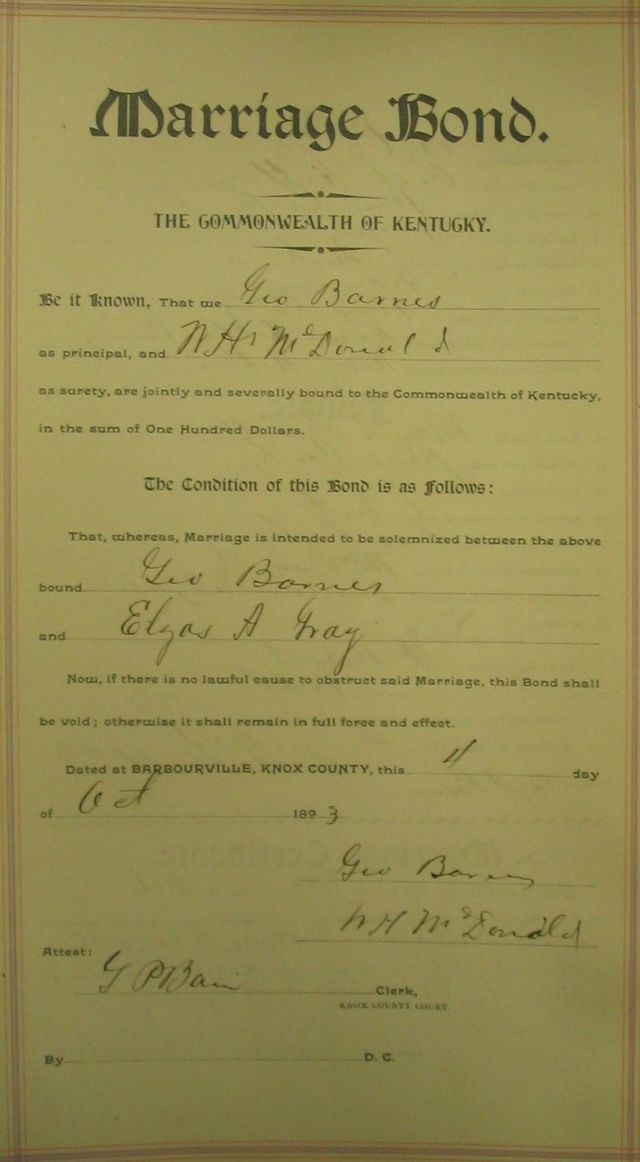 Marriage Bond.
THE COMMONWEALTH OF KENTUCKY.
Be it Known, That we Geo Barnes
as principal, and W H McDonald
as surety, are jointly and severally bound to the Commonwealth of Kentucky,
in the sum of One Hundred Dollars.
The Condition of this Bond is as Follows:
That, whereas, Marriage is intended to be solemnized between the above
bound Geo Barnes
and A Gray
Now, if there is no lawful cause to obstruct said Marriage, this Bond shall
be void; otherwise it shall remain in full force and effect.
Dated at BARBOURVILLE, KNOX COUNTY, this 4 day
of Oct 1893
Geo Barnes
W H McDonald
Attest:
G P Bain Clerk,
KNOX COUNTY COURT.
By D. C.